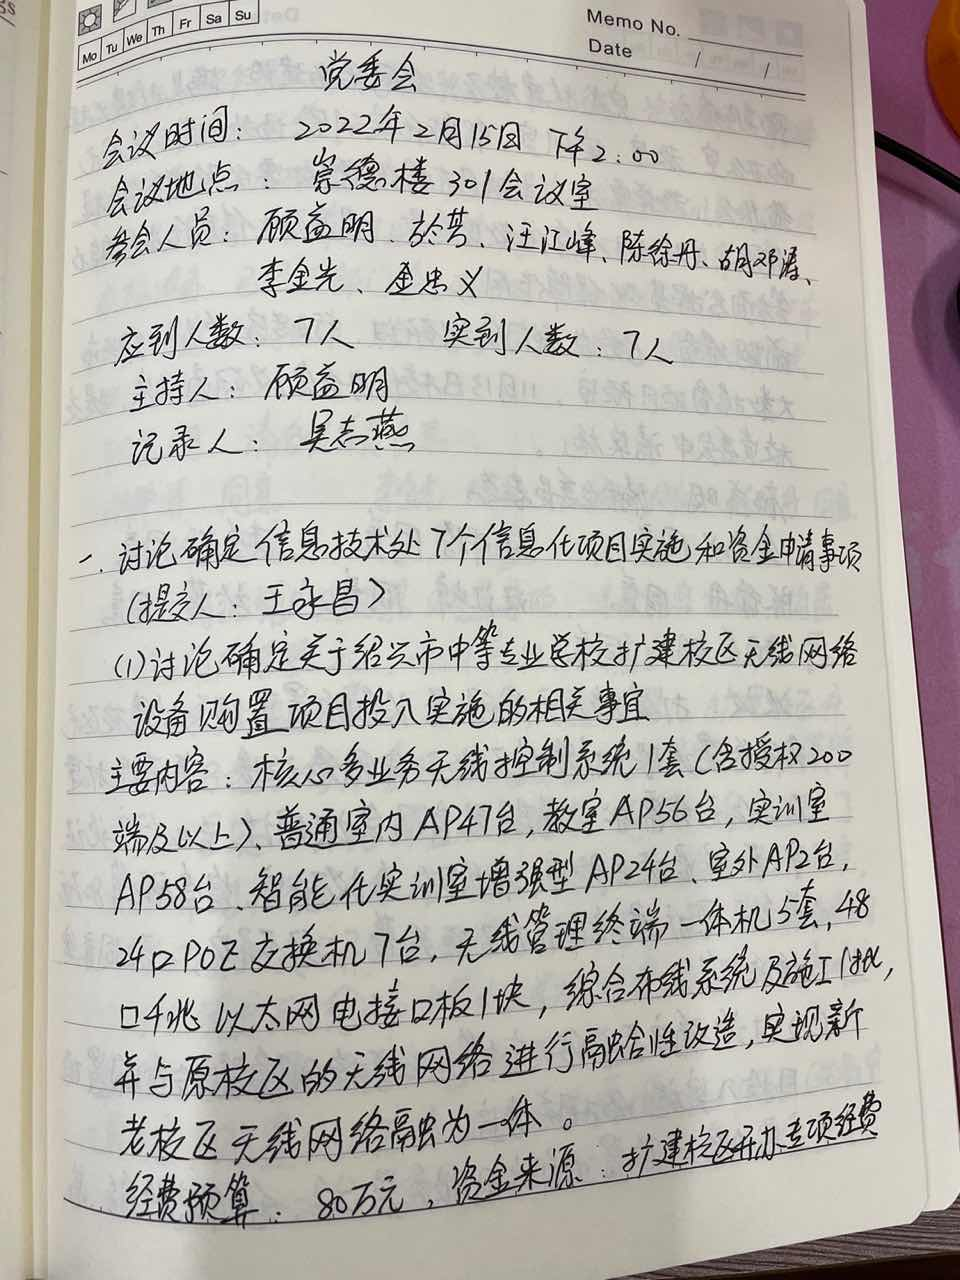 Mo Tu We Th Fr Sa Su
Memo No.
Date / /
党委会
会议时间: 2022年2月15日 下午2:00
会议地点: 崇德楼301会议室
参会人员: 顾益明、於芳、汪江峰、陈徐丹、胡邓涛、
李金光、金忠义
应到人数: 7人 实到人数: 7人
主持人: 顾益明
记录人: 吴志燕
一、讨论确定信息技术处7个信息化项目实施和资金申请事项
(提交人: 王永昌)
(1)讨论确定关于绍兴市中等专业学校扩建校区无线网络
设备购置项目投入实施的相关事宜
主要内容: 核心多业务无线控制系统1套(含授权200
端及以上)、普通室内AP47台,教室AP56台,实训室
AP58台、智能化实训室增强型AP24台、室外AP2台,
24口POE交换机7台,无线管理终端一体机5套,48
口千兆以太网电接口板1块,综合布线系统及施工1批,
并与原校区的无线网络进行融合性改造,实现新
老校区无线网络融为一体。
经费预算: 80万元,资金来源: 扩建校区开办专项经费